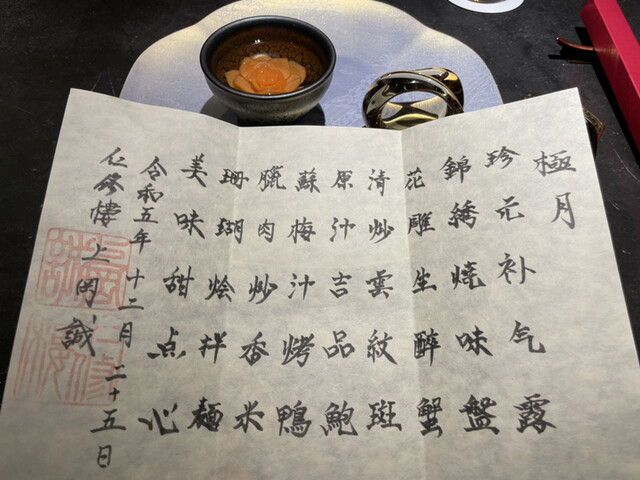 極月
珍元补气露
錦繡燒味盤
花雕生醉蟹
清炒雲紋斑
原汁吉品鮑
蘇梅汁烤鴨
臘肉炒香米
珊瑚烩拌麺
美味甜点心
令和五年十二月二十五日
仁修樓 上岡誠